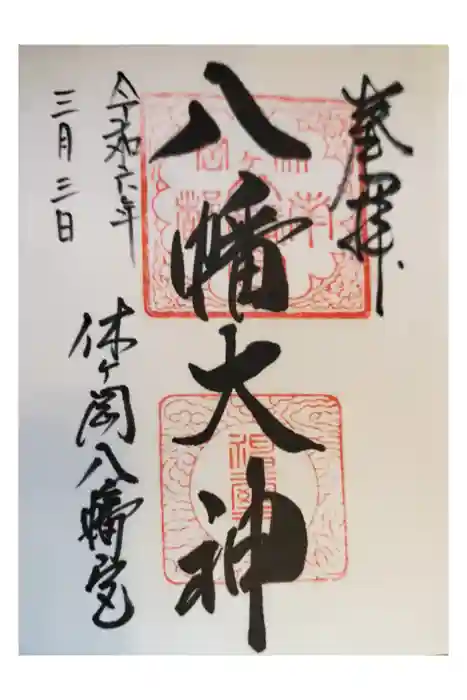 奉拝
八幡大神
令和六年
三月三日
休ヶ岡八幡宮